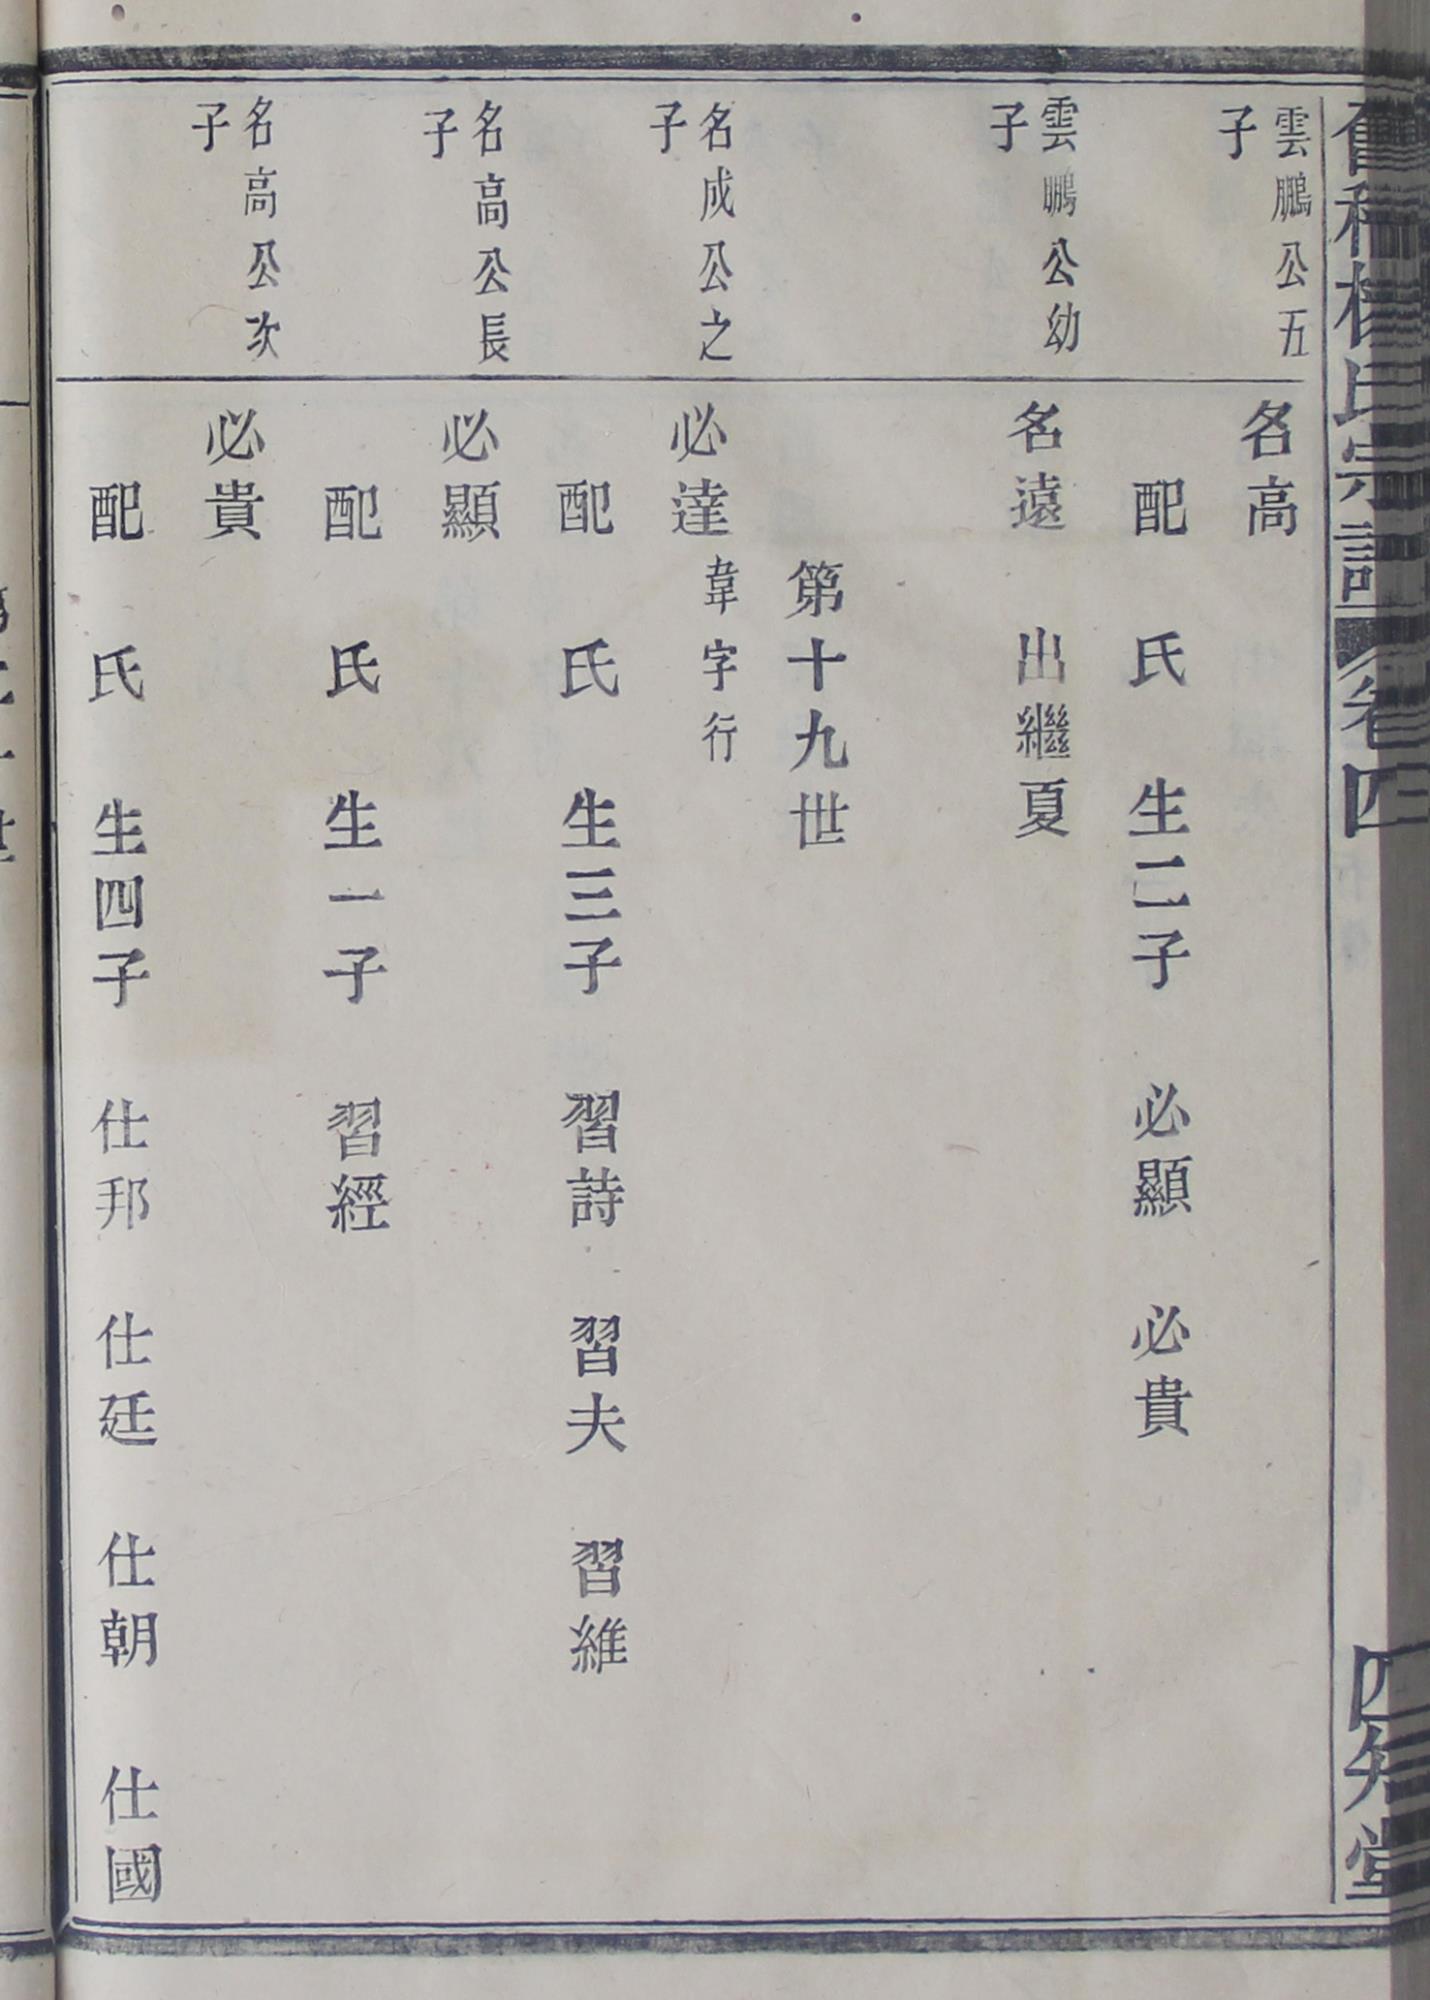 氏宗譜 卷四 四知堂
雲鵬公五
子
名高
配 氏 生二子 必顯 必貴
雲鵬公幼
子
名遠 出繼夏
第十九世
名成公之
子
必達 韋字行
配 氏 生三子 習詩 習夫 習維
名高公長
子
必顯
配 氏 生一子 習經
名高公次
子
必貴
配 氏 生四子 仕邦 仕廷 仕朝 仕國